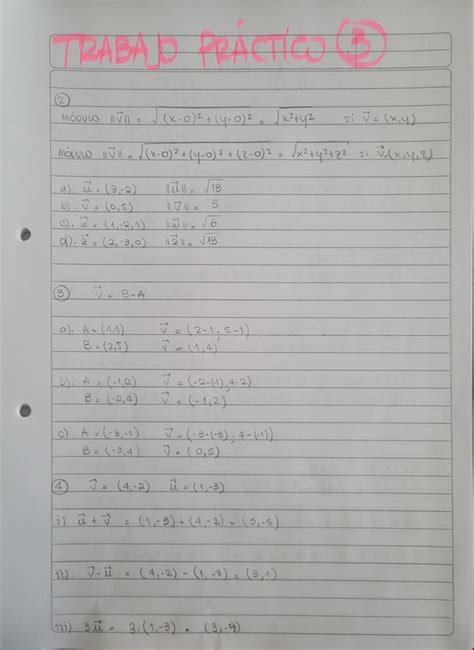 TRABAJO PRÁCTICO 3
②
MÓDULO ||V⃗|| = √(x-0)²+(y-0)² = √x²+y² si V⃗=(x,y)
MÓDULO ||V⃗|| = √(x-0)²+(y-0)²+(z-0)² = √x²+y²+z² si V⃗=(x,y,z)
a). u⃗=(3,-2) ||u⃗||=√13
b). v⃗=(0,5) ||v⃗||= 5
c). w⃗=(1,-2,1) ||w⃗||=√6
d). z⃗=(2,-3,0) ||z⃗||=√13
③ V⃗= B-A
a). A=(1,1) V⃗=(2-1, 5-1)
B=(2,5) V⃗=(1,4)
b). A=(-1,2) V⃗=(-2-(-1),4-2)
B=(-2,4) V⃗=(-1,2)
c). A=(-3,-1) V⃗=(-3-(-3), 4-(-1))
B=(-3,4) V⃗=(0,5)
④ V⃗=(4,-2) u⃗=(1,-3)
i) u⃗+v⃗ =(1,-3)+(4,-2)=(5,-5)
ii). v⃗-u⃗ =(4,-2)-(1,-3)=(3,1)
iii) 3u⃗= 3.(1,-3) = (3,-9)